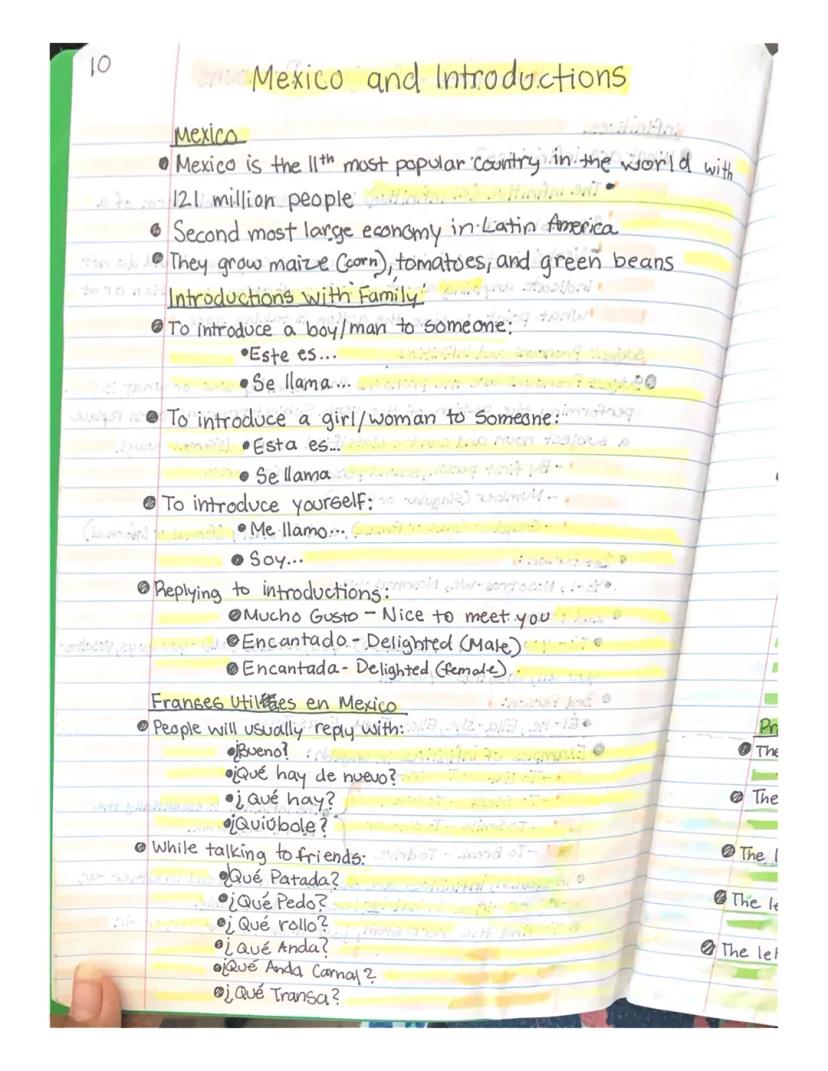 10
Mexico and Introductions
Mexico
• Mexico is the 11th most popular country in the world with
121 million people
• Second most large economy in Latin America
• They grow maize (corn), tomatoes, and green beans
Introductions with Family
• To introduce a boy/man to someone:
• Este es...
• Se llama...
• To introduce a girl/woman to someone:
• Esta es...
• Se llama
• To introduce yourself:
• Me llamo...
• Soy...
• Replying to introductions:
• Mucho Gusto - Nice to meet you
• Encantado - Delighted (Male)
• Encantada - Delighted (female)
Franses Utiles en Mexico
• People will usually reply with:
• ¿Bueno?
• ¿Qué hay de nuevo?
• ¿Qué hay?
• ¿Quiúbole?
• While talking to friends:
• ¿Qué Patada?
• ¿Qué Pedo?
• ¿Qué rollo?
• ¿Qué Anda?
• ¿Qué Anda Carnal?
• ¿Qué Transa?
Pr
• The
• The
• The l
• The le
• The let